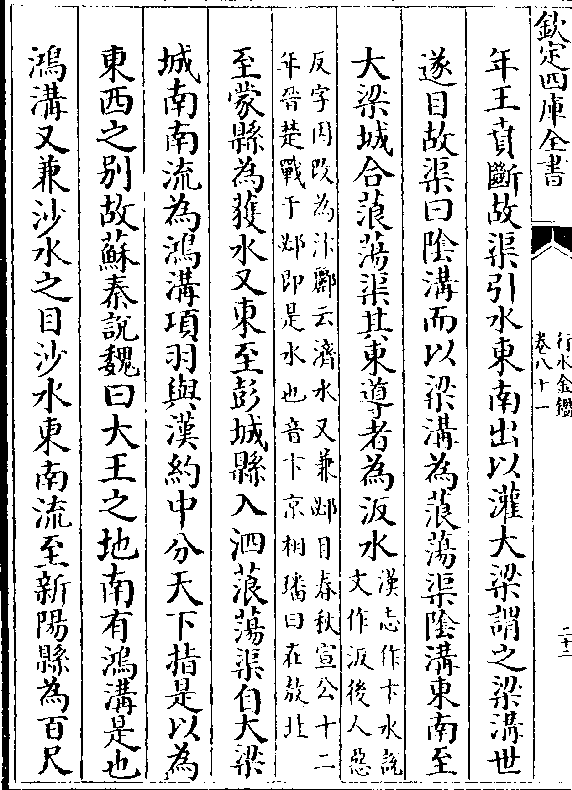 欽定四庫全書
行水金鑑
卷八十一
二十二
年王賁斷故渠引水東南出以灌大梁謂之梁溝世
遂目故渠曰陰溝而以梁溝為蒗蕩渠陰溝東南至
大梁城合蒗蕩渠其東導者為汳水
漢志作卞水說
文作汳後人惡
反字因改為汴酈云濟水又兼邲目春秋宣公十二
年晉楚戰于邲即是水也音卞京相璠曰在敖北
至蒙縣為獲水又東至彭城縣入泗蒗蕩渠自大梁
城南南流為鴻溝項羽與漢約中分天下指是以為
東西之別故蘇秦說魏曰大王之地南有鴻溝是也
鴻溝又兼沙水之目沙水東南流至新陽縣為百尺